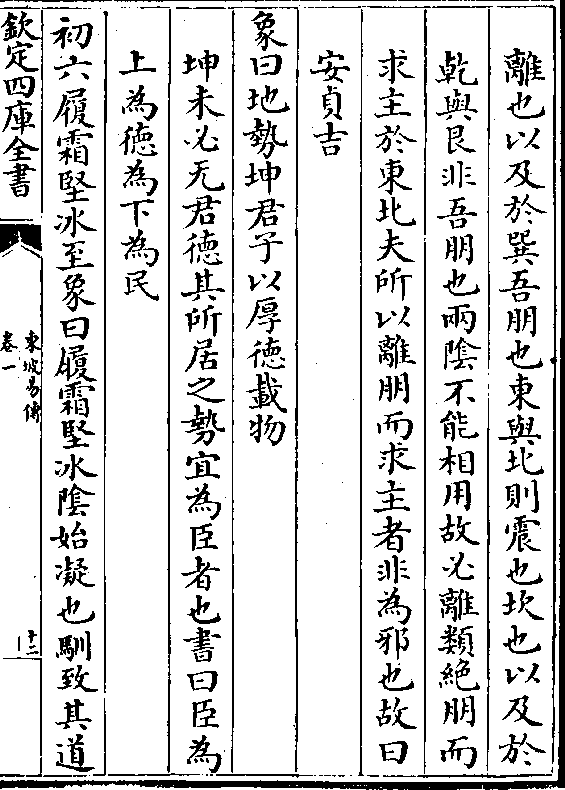 離也以及於巽吾朋也東與北則震也坎也以及於
乾與艮非吾朋也兩陰不能相用故必離類絶朋而
求主於東北夫所以離朋而求主者非為邪也故曰
安貞吉
象曰地勢坤君子以厚德載物
坤未必无君德其所居之勢宜為臣者也書曰臣為
上為德為下為民
初六履霜堅冰至象曰履霜堅冰陰始凝也馴致其道
欽定四庫全書
東坡易傳
卷一
十二